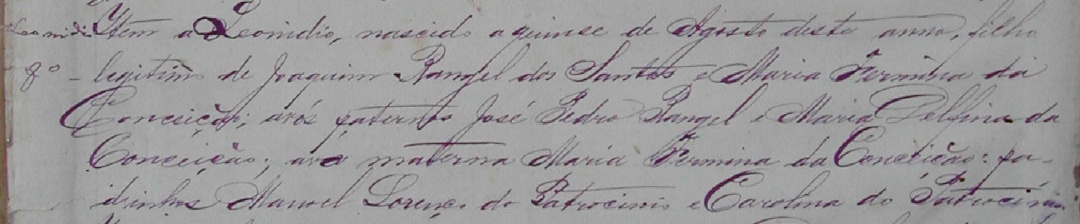 Leonidio Item a Leonidio, nascido a quinse de Agosto deste anno, filho
8º - legitimo de Joaquim Rangel dos Santos e Maria Firmina da
Conceição; avós paternos José Pedro Rangel e Maria Delfina da
Conceição; avó materna Maria Firmina da Conceição: pa-
drinhos Manoel Lorenço do Patrocinio e Carolina do Patrocinio